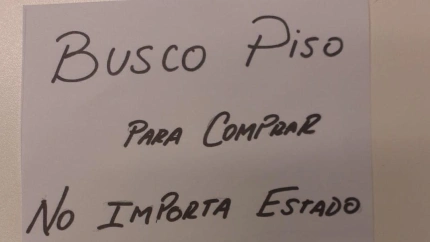 BUSCO PISO
PARA COMPRAR
NO IMPORTA ESTADO